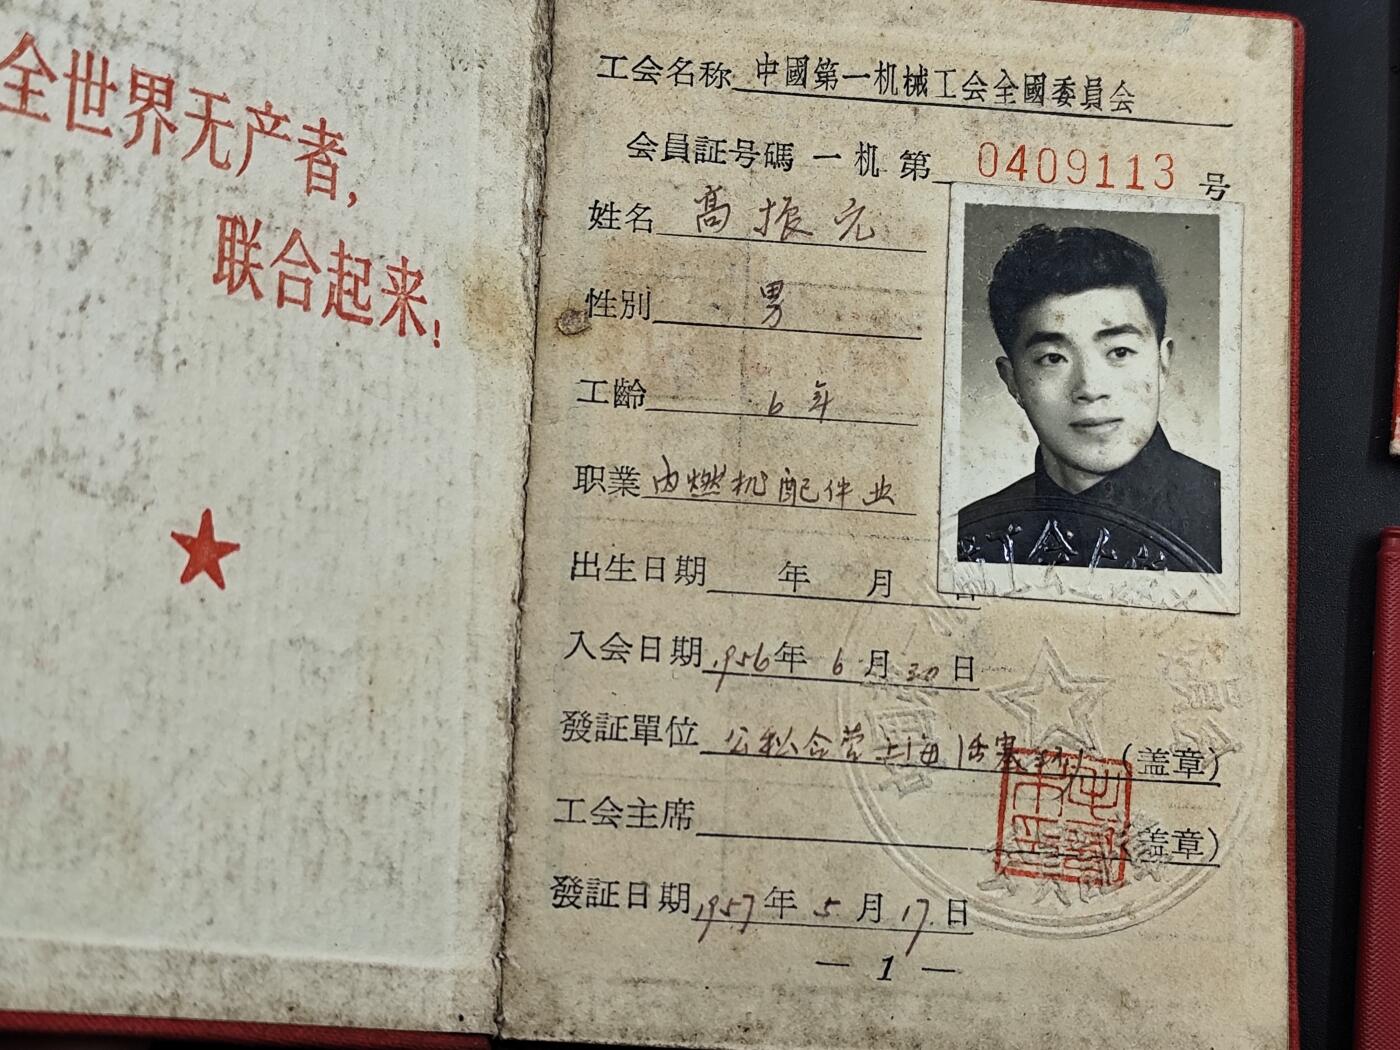 全世界无产者,
联合起来!
工会名称 中國第一机械工会全國委員会
会員証号碼 一机 第 0409113 号
姓名 高振元
性別 男
工齡 6年
职業 内燃机配件业
出生日期 年 月 日
入会日期 1956年 6月30日
發証單位 公私合营上海活塞 (盖章)
工会主席 (盖章)
發証日期 1957年 5月17日
— 1 —